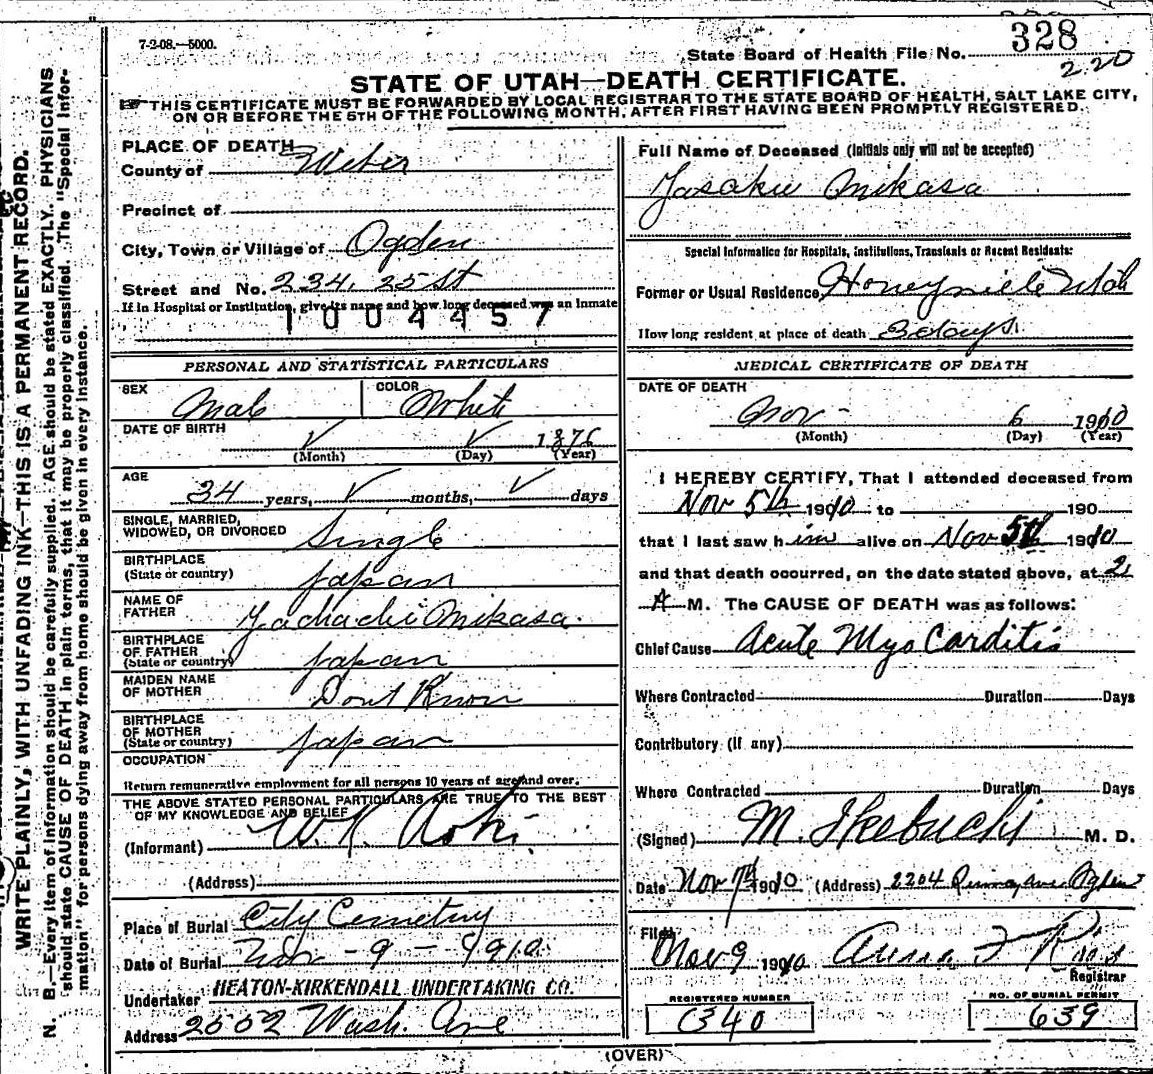 7-2-08.—5000.
State Board of Health File No. 328
2 20
STATE OF UTAH—DEATH CERTIFICATE.
THIS CERTIFICATE MUST BE FORWARDED BY LOCAL REGISTRAR TO THE STATE BOARD OF HEALTH, SALT LAKE CITY,
ON OR BEFORE THE 5TH OF THE FOLLOWING MONTH, AFTER FIRST HAVING BEEN PROMPTLY REGISTERED.
WRITE PLAINLY, WITH UNFADING INK—THIS IS A PERMANENT RECORD.
N. B.—Every item of information should be carefully supplied. AGE should be stated EXACTLY. PHYSICIANS
should state CAUSE OF DEATH in plain terms, that it may be properly classified. The "Special Infor-
mation" for persons dying away from home should be given in every instance.
PLACE OF DEATH
County of Weber
Precinct of
City, Town or Village of Ogden
Street and No. 234. 25 St
If in Hospital or Institution, give its name and how long deceased was an inmate
1004457
PERSONAL AND STATISTICAL PARTICULARS
SEX Male COLOR White
DATE OF BIRTH 1876
(Month) (Day) (Year)
AGE 34 years, months, days
SINGLE, MARRIED,
WIDOWED, OR DIVORCED Single
BIRTHPLACE
(State or country) Japan
NAME OF
FATHER Yachachi Mikasa
BIRTHPLACE
OF FATHER
(State or country) Japan
MAIDEN NAME
OF MOTHER Dont Know
BIRTHPLACE
OF MOTHER
(State or country) Japan
OCCUPATION
Return remunerative employment for all persons 10 years of age and over.
THE ABOVE STATED PERSONAL PARTICULARS ARE TRUE TO THE BEST
OF MY KNOWLEDGE AND BELIEF
(Informant) W. K. Aoki.
(Address)
Place of Burial City Cemetery
Date of Burial Nov - 9 - 1910
Undertaker HEATON-KIRKENDALL UNDERTAKING CO.
Address 2552 Wash. Ave
Full Name of Deceased (Initials only will not be accepted)
Yasaku Mikasa
Special Information for Hospitals, Institutions, Transients or Recent Residents:
Former or Usual Residence Utah
How long resident at place of death
MEDICAL CERTIFICATE OF DEATH
DATE OF DEATH
Nov - 6 1910
(Month) (Day) (Year)
I HEREBY CERTIFY, That I attended deceased from
Nov 5th 1910 to 190
that I last saw him alive on Nov 5th 1910
and that death occurred, on the date stated above, at 2
A M. The CAUSE OF DEATH was as follows:
Chief Cause Acute Myo Carditis
Where Contracted Duration Days
Contributory (if any)
Where Contracted Duration Days
(Signed) M. Ikebuchi M. D.
Date Nov 7th 1910 (Address) 2204 Ogden
Filed Nov 9 1910 Anna F
Registrar
REGISTERED NUMBER
C340
NO. OF BURIAL PERMIT
639
(OVER)